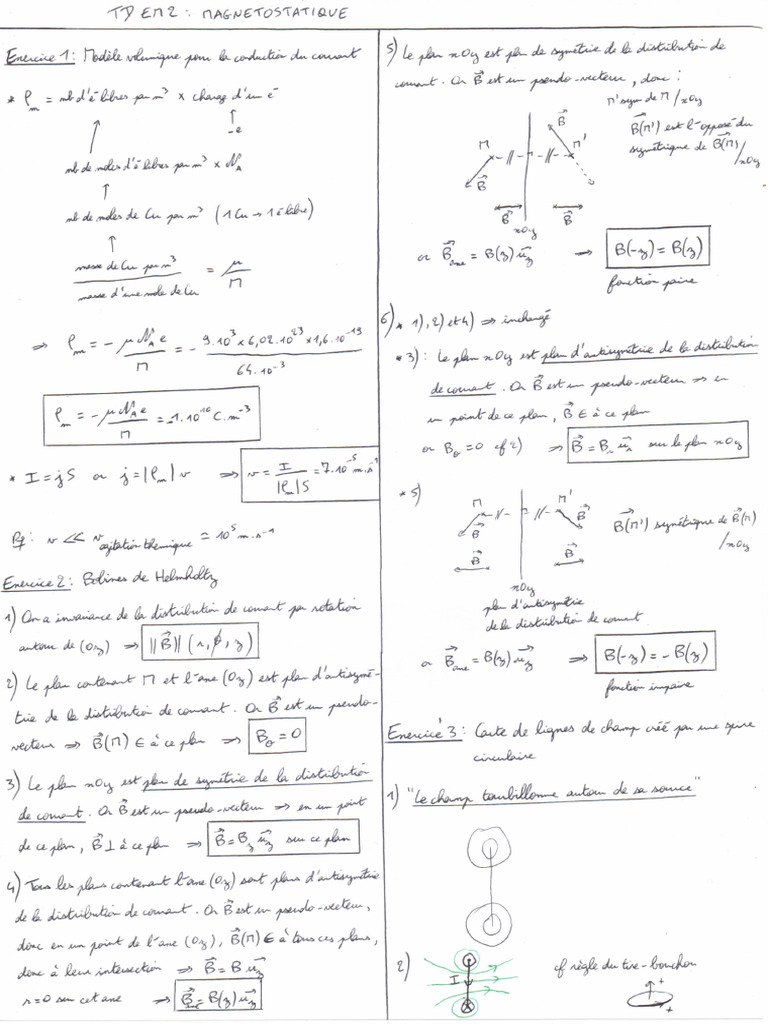 TD EM2 : MAGNETOSTATIQUE
Exercice 1 : Modèle volumique pour la conduction du courant
* ρm = nb d'é libres par m³ × charge d'un é
-e
nb de moles d'é libres par m³ × NA
nb de moles de Cu par m³ (1 Cu → 1 é libre)
masse de Cu par m³ / masse d'une mole de Cu = μ / M
⇒ ρm = - μ NA e / M = - 9.10³ × 6,02.10²³ × 1,6.10⁻¹⁹ / 64.10⁻³
ρm = - μ NA e / M = -1.10¹⁰ C.m⁻³
* I = jS or j = |ρm| v ⇒ v = I / |ρm|S = 7.10⁻⁵ m.s⁻¹
Rq : v << v agitation thermique ≃ 10⁵ m.s⁻¹
Exercice 2 : Bobines de Helmholtz
1) On a invariance de la distribution de courant par rotation
autour de (Oz) ⇒ ||B⃗|| (r, θ̸, z)
2) Le plan contenant M et l'axe (Oz) est plan d'antisymé-
trie de la distribution de courant. Or B⃗ est un pseudo-
vecteur ⇒ B⃗(M) ∈ à ce plan ⇒ Bθ = 0
3) Le plan xOy est plan de symétrie de la distribution
de courant. Or B⃗ est un pseudo-vecteur ⇒ en un point
de ce plan, B⃗ ⊥ à ce plan ⇒ B⃗ = Bz u⃗z sur ce plan
4) Tous les plans contenant l'axe (Oz) sont plans d'antisymétrie
de la distribution de courant. Or B⃗ est un pseudo-vecteur,
donc en un point de l'axe (Oz), B⃗(M) ∈ à tous ces plans,
donc à leur intersection ⇒ B⃗ = B u⃗z
r = 0 sur cet axe ⇒ B⃗axe = B(z) u⃗z
5) Le plan xOy est plan de symétrie de la distribution de
courant. Or B⃗ est un pseudo-vecteur, donc :
M' sym de M / xOy
M B⃗ B⃗ M'
B⃗(M') est l'opposé du
symétrique de B⃗(M) / xOy
B⃗ B⃗
xOy
or B⃗axe = B(z) u⃗z ⇒ B(-z) = B(z)
fonction paire
6) * 1), 2) et 4) ⇒ inchangé
* 3) : Le plan xOy est plan d'antisymétrie de la distribution
de courant. Or B⃗ est un pseudo-vecteur ⇒ en
un point de ce plan, B⃗ ∈ à ce plan
or Bθ = 0 cf 2) ⇒ B⃗ = Br u⃗r sur le plan xOy
* 5)
M M'
B⃗ B⃗
B⃗(M') symétrique de B⃗(M) / xOy
B⃗ B⃗
xOy
plan d'antisymétrie
de la distribution de courant
or B⃗axe = B(z) u⃗z ⇒ B(-z) = - B(z)
fonction impaire
Exercice 3 : Carte de lignes de champ créé par une spire
circulaire
1) "Le champ tourbillonne autour de sa source"
2) I cf règle du tire-bouchon
+ +